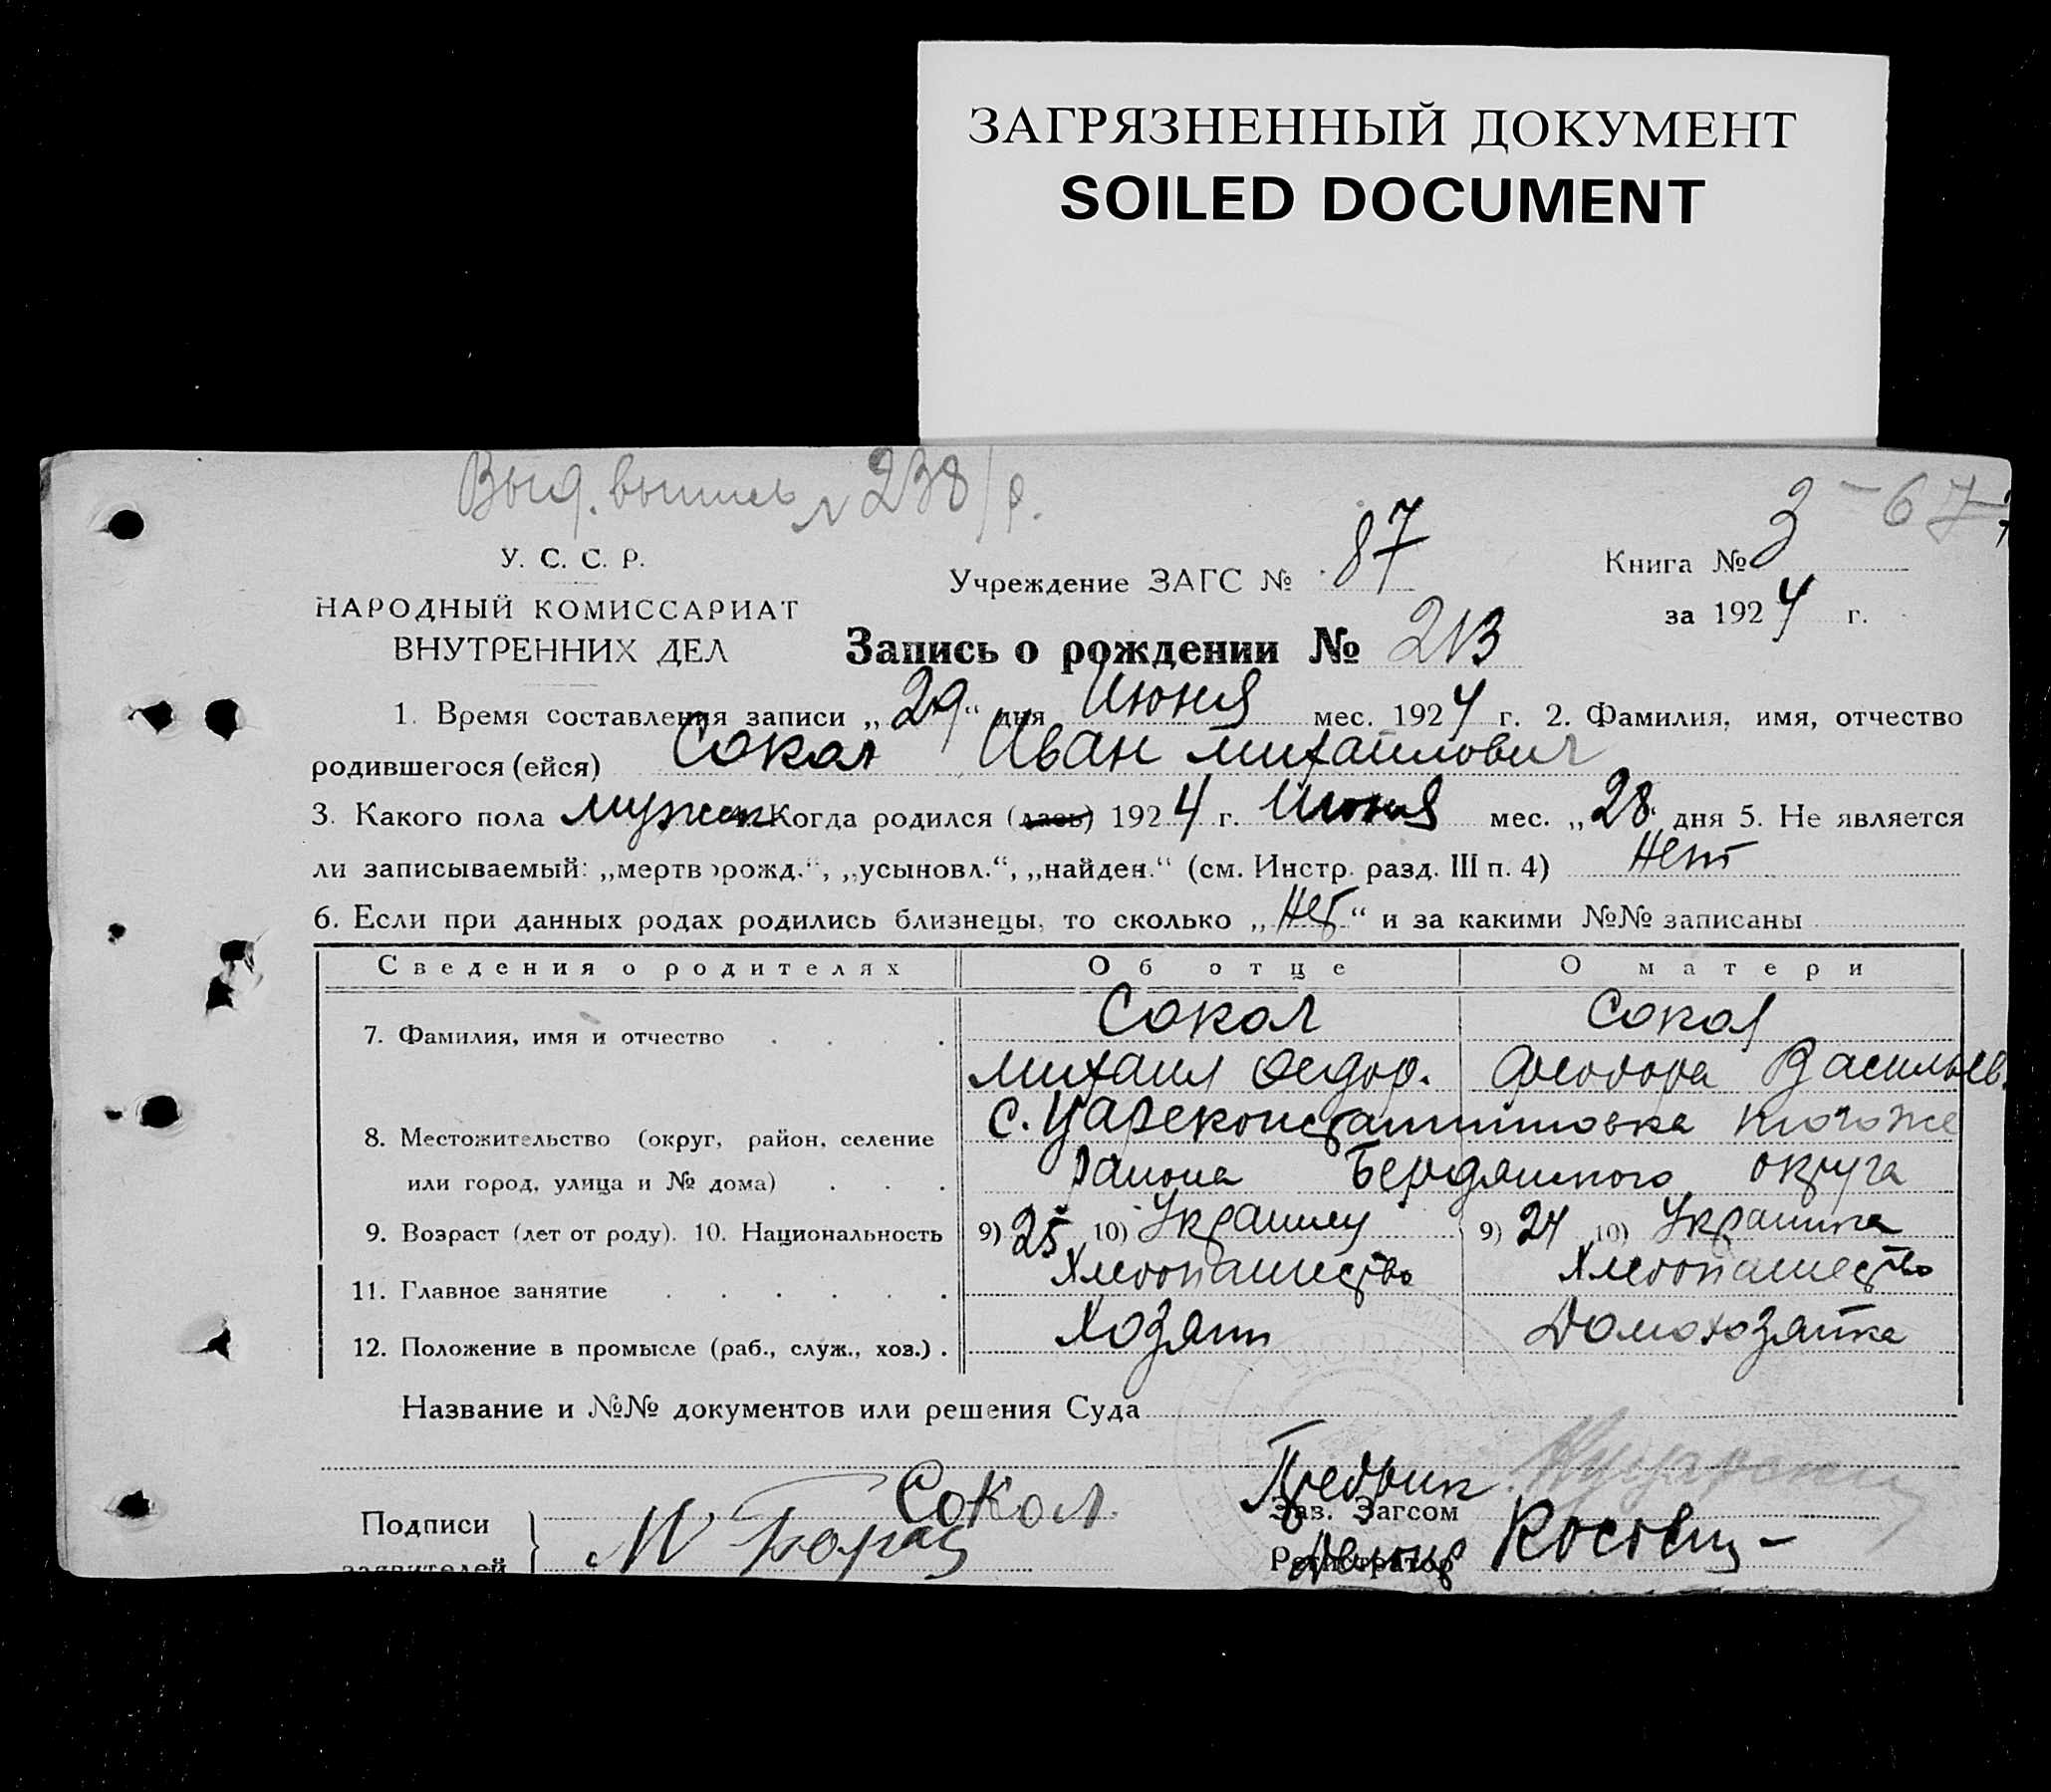 ЗАГРЯЗНЕННЫЙ ДОКУМЕНТ
SOILED DOCUMENT
Выд. выпись № 238/р.
3 – 67
У. С. С. Р.
НАРОДНЫЙ КОМИССАРИАТ
ВНУТРЕННИХ ДЕЛ
Учреждение ЗАГС № 87
Книга № 3
за 1924 г.
Запись о рождении № 213
1. Время составления записи „29“ дня Июня мес. 1924 г. 2. Фамилия, имя, отчество
родившегося (ейся) Сокол Иван Михайлович
3. Какого пола мужск Когда родился (лась) 1924 г. Июня мес. „28 дня 5. Не является
ли записываемый: „мертворожд.“, „усыновл.“, „найден.“ (см. Инстр. разд. III п. 4) Нет
6. Если при данных родах родились близнецы, то сколько „Нет“ и за какими №№ записаны
Сведения о родителях Об отце О матери
7. Фамилия, имя и отчество Сокол Сокол
Михаил Федор. Феодора Васильев.
8. Местожительство (округ, район, селение с. Цареконстантиновка
или город, улица и № дома) района Бердянского округа
9. Возраст (лет от роду). 10. Национальность 9) 25 10) Украинец 9) 24 10) Украинка
11. Главное занятие Хлебопашество Хлебопашество
12. Положение в промысле (раб., служ., хоз.) Хозяин Домохозяйка
Название и №№ документов или решения Суда
Подписи
заявителей
Сокол
Зав. Загсом
Регистратор